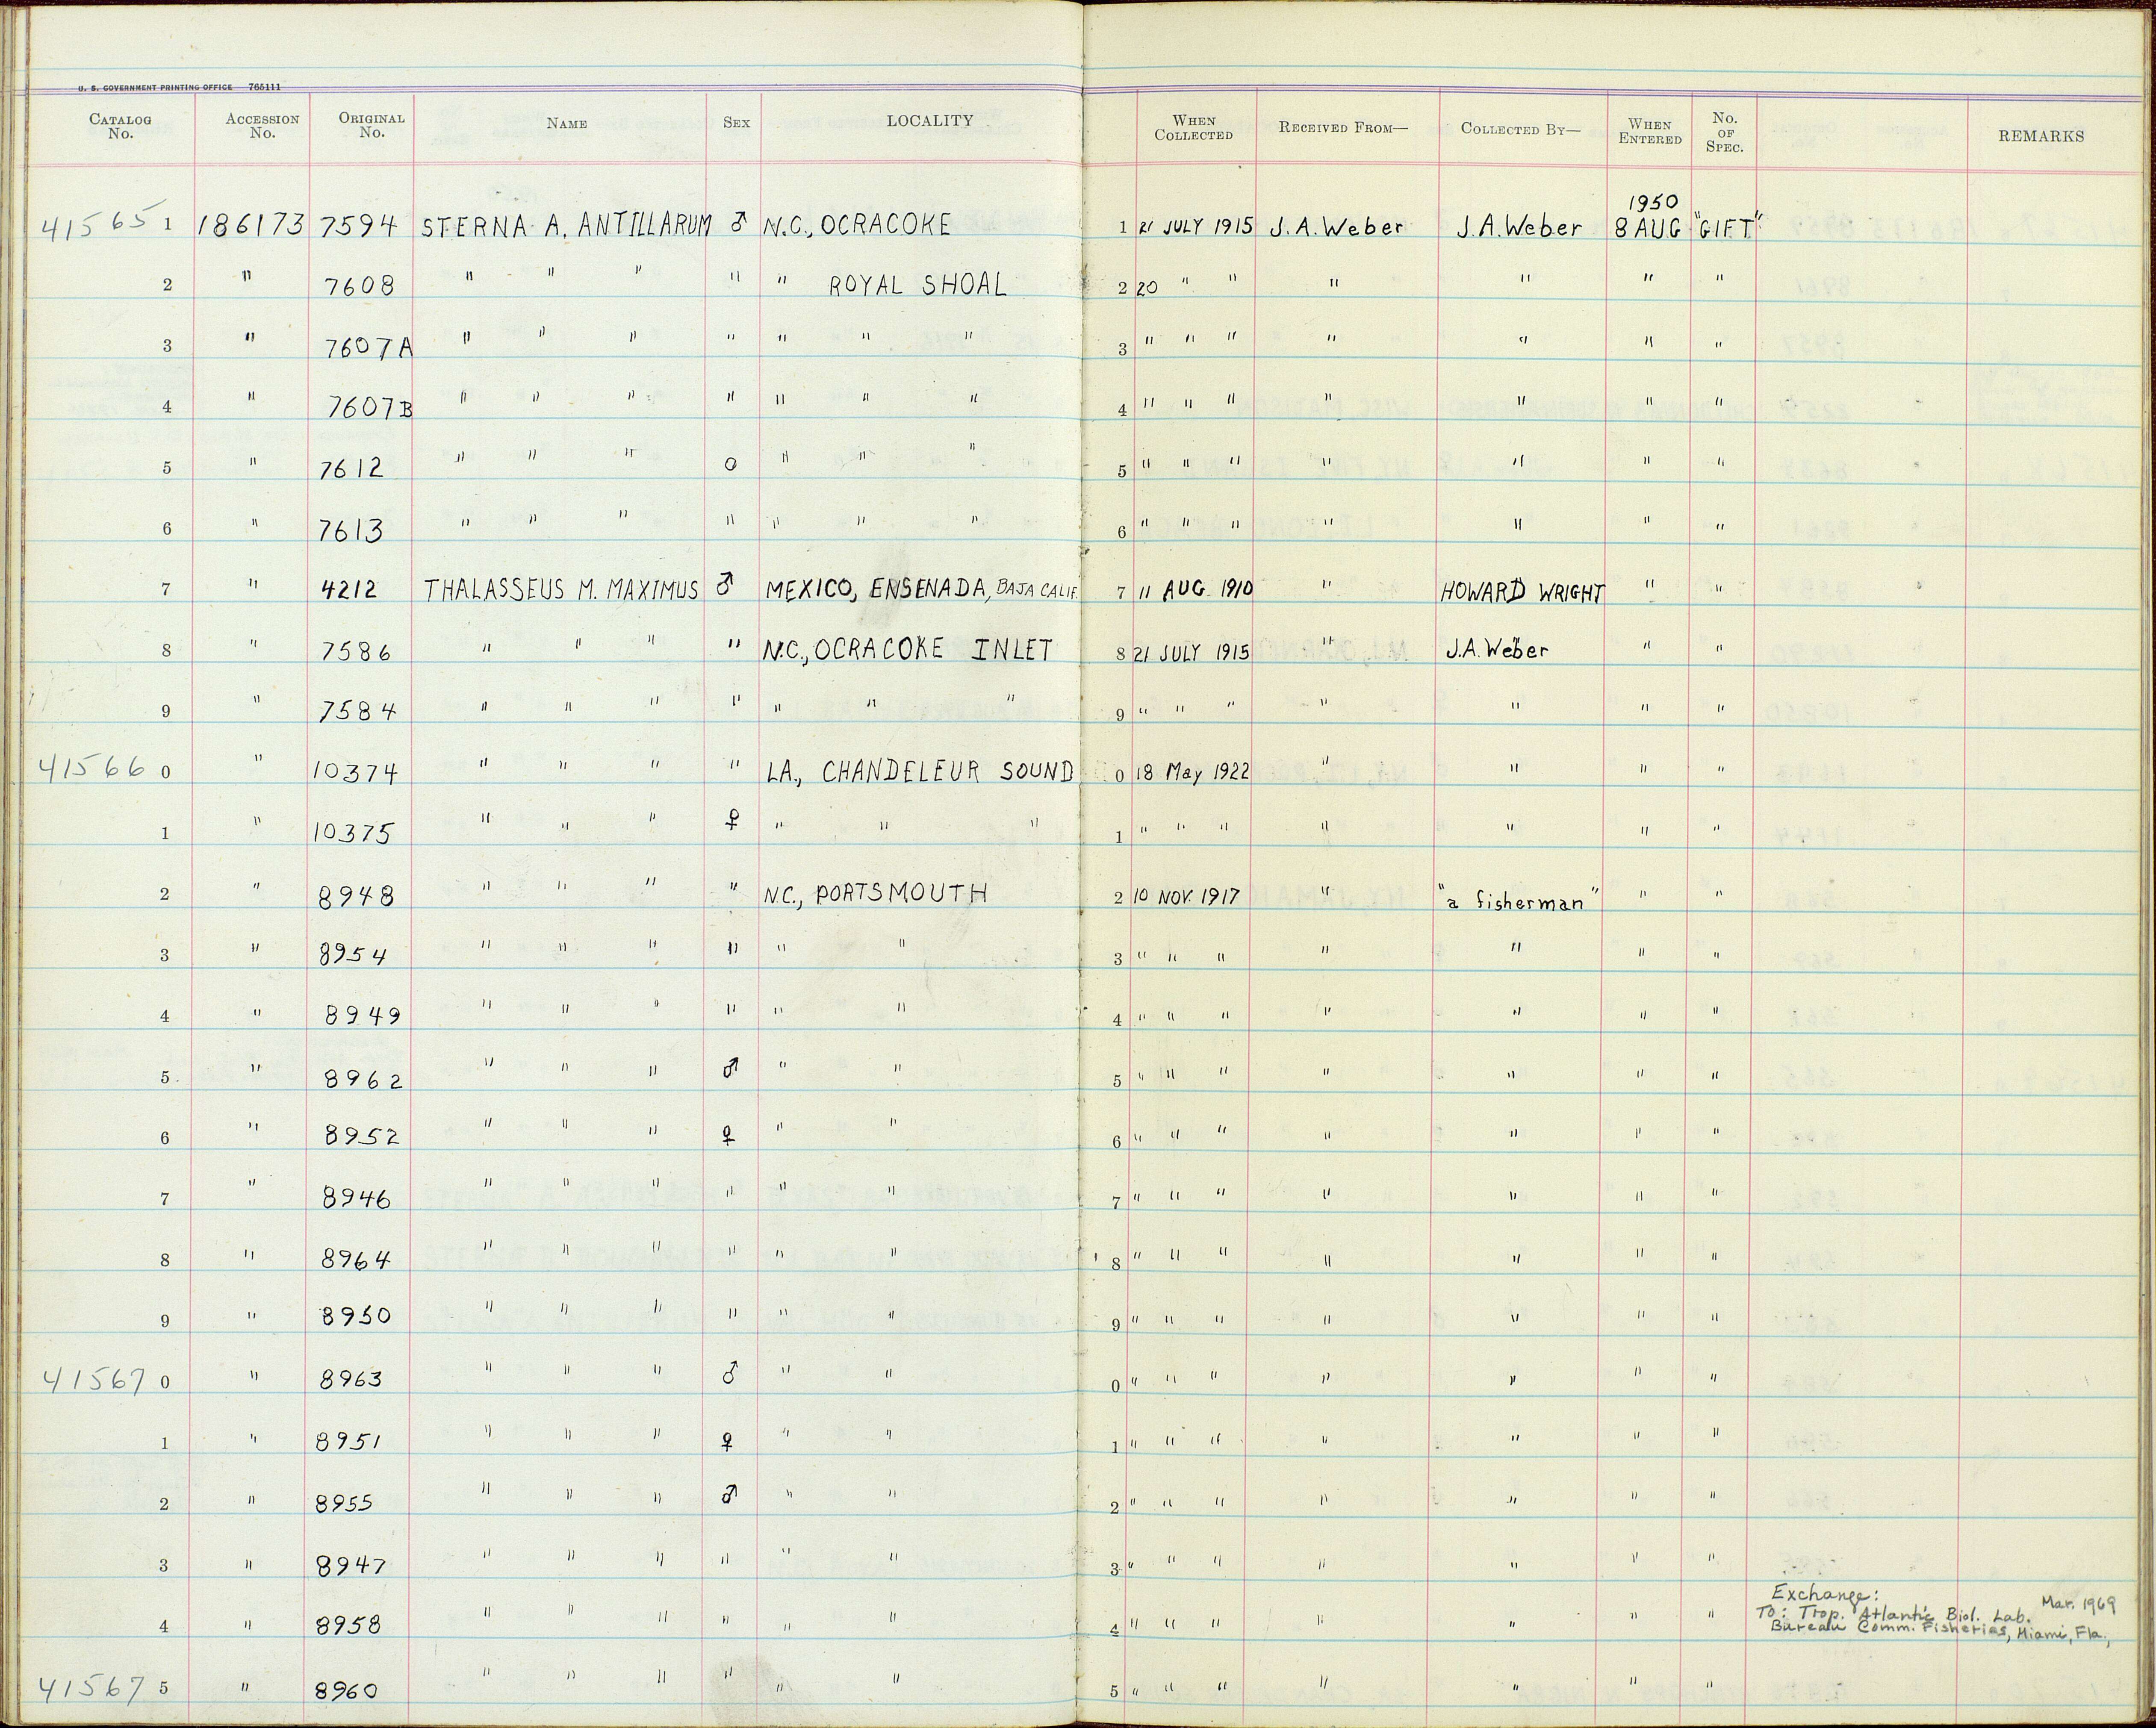 U. S. GOVERNMENT PRINTING OFFICE 765111
CATALOG No. ACCESSION No. ORIGINAL No. NAME SEX LOCALITY WHEN COLLECTED RECEIVED FROM— COLLECTED BY— WHEN ENTERED No. OF SPEC. REMARKS
1950
41565 1 186173 7594 STERNA A. ANTILLARUM ♂ N.C., OCRACOKE 1 21 JULY 1915 J.A. Weber J.A. Weber 8 AUG "GIFT"
2 " 7608 " " " " " ROYAL SHOAL 2 20 " " " " " "
3 " 7607A " " " " " " " 3 " " " " " " "
4 " 7607B " " " " " " " 4 " " " " " " "
5 " 7612 " " " O " " " 5 " " " " " " "
6 " 7613 " " " " " " " 6 " " " " " " "
7 " 4212 THALASSEUS M. MAXIMUS ♂ MEXICO, ENSENADA, BAJA CALIF. 7 11 AUG. 1910 " HOWARD WRIGHT " "
8 " 7586 " " " " N.C., OCRACOKE INLET 8 21 JULY 1915 " J.A. Weber " "
9 " 7584 " " " " " " " 9 " " " " " " "
41566 0 " 10374 " " " " LA., CHANDELEUR SOUND 0 18 May 1922 " " " "
1 " 10375 " " " ♀ " " " 1 " " " " " " "
2 " 8948 " " " " N.C., PORTSMOUTH 2 10 NOV. 1917 " "a fisherman" " "
3 " 8954 " " " " " " 3 " " " " " " "
4 " 8949 " " " " " " 4 " " " " " " "
5 " 8962 " " " ♂ " " 5 " " " " " " "
6 " 8952 " " " ♀ " " 6 " " " " " " "
7 " 8946 " " " " " " 7 " " " " " " "
8 " 8964 " " " " " " 8 " " " " " " "
9 " 8950 " " " " " " 9 " " " " " " "
41567 0 " 8963 " " " ♂ " " 0 " " " " " " "
1 " 8951 " " " ♀ " " 1 " " " " " " "
2 " 8955 " " " ♂ " " 2 " " " " " " "
3 " 8947 " " " " " " 3 " " " " " " "
4 " 8958 " " " " " " 4 " " " " " " " Exchange: Mar. 1969
To: Trop. Atlantic Biol. Lab.
Bureau Comm. Fisheries, Miami, Fla.,
41567 5 " 8960 " " " " " " 5 " " " " " " "